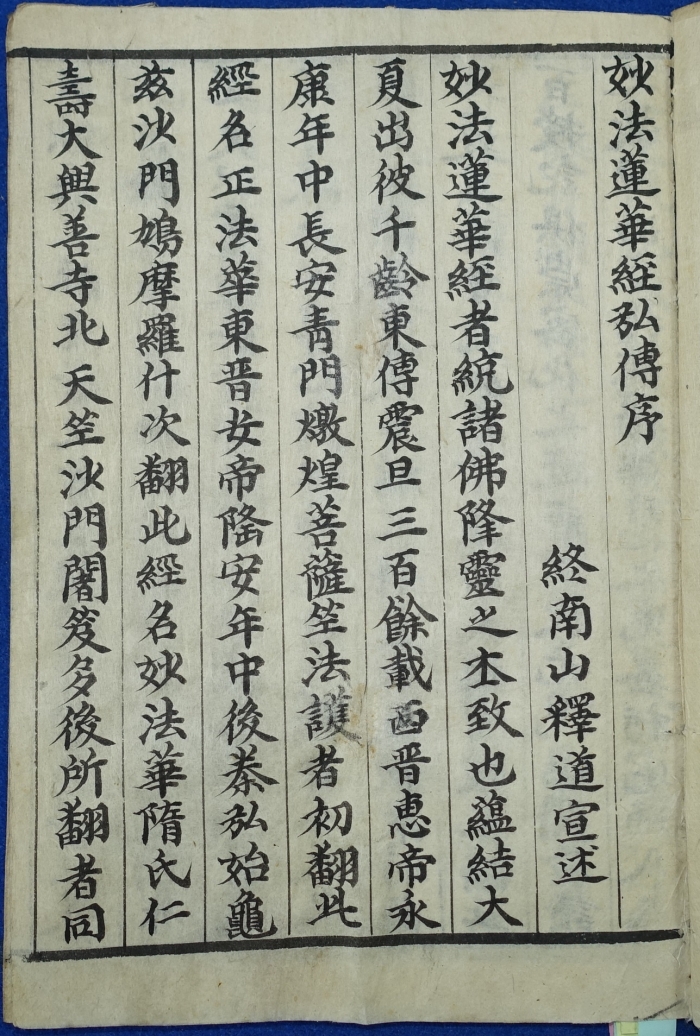 妙法蓮華経弘傳序
終南山釋道宣述
妙法蓮華経者統諸佛降靈之夲致也蘊結大
夏出彼千齡東傳震旦三百餘載西晋恵帝永
康年中長安青門燉煌菩薩笁法護者初翻此
經名正法華東晋安帝隆安年中後秦弘始龜
玆沙門鳩摩羅什次翻此經名妙法華隋氏仁
壽大興善寺北天笁沙門闍笈多後所翻者同